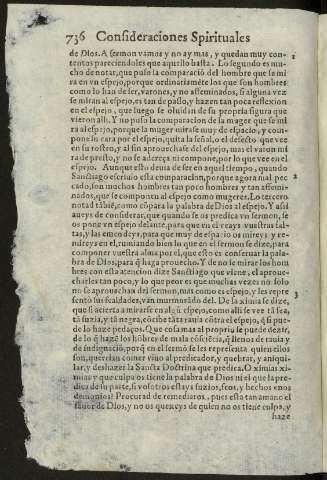 736 Consideraciones Spirituales
de Dios. A sermon vamos y no ay mas, y quedan muy con-
tentos pareciendoles que aquello basta. Lo segundo es mu-
cho de notar, que puso la comparació del hombre que se mi-
ra en el espejo, porque ordinariaméte los que son hombres
como lo han de ser, varones, y no affeminados, si alguna vez
se miran al espejo, es tan de passo, y hazen tan poca reflexion
en el espejo, que luego se oluidan de su propria figura que
vieron alli. Y no puso la comparacion de la muger que se mi
ra al espejo, porque la muger mirase muy de espacio, y com-
pone su cara por el espejo, quita la señal, o el defecto que vee
en su rostro, y al fin aprouechase del espejo, mas el varon mi
ra de presto, y no se adereça ni compone, por lo que vee en el
espejo. Aunque esto deuia de ser en aquel tiempo, quando
Sanctiago escriuio esta comparacion, porque agora mal pec
cado, son muchos hombres tan poco hombres y tan affemi-
nados, que se componen al espejo como mugeres. Lo tercero
notad tābié, como cōpara la palabra de Dios al espejo. Y assi
aueys de considerar, que quando se os predica vn sermon, se
os pone vn espejo delante, para que en el veays vuestras fal-
tas, y las emendeys, para que muy de espacio os mireys y re-
mireys en el, rumiando bien lo que en el sermon se dize, para
componer vuestra alma por el, que esto es conseruar la pala-
bra de Dios, para q̃ haga prouecho. Y de no se mirar los hom
bres con esta atencion dize Sanctiago que viene, el aproue-
charles tan poco, y lo que peor es que muchas vezes no solo
no se aprouechan del sermon, mas como es espejo, y les repre
sento sus fealdades, van murmurādo del. De la ximia se dize,
que si acierta a mirarse en algũ espejo, como alli se vee tā fea,
tā suzia, y tā negra, cōcibe tāta rauia cōtra el espejo, q̃ si pue-
de lo haze pedaços. Que cosa mas al proprio se puede dezir,
de lo q̃ hazẽ los hōbres de mala cōsciẽcia, q̃ llenos de rauia y
de indignació, porq̃ en el sermō se les representa quien ellos
son, querrian comer viuo al predicador, y quebrar, y aniqui-
lar, y deshazer la Sancta Doctrina que predica. O ximias xi-
mias y que culpa os tiene la palabra de Dios ni el que la pre-
dica de su parte, si vosotros estays suzios, feos, y hechos vnos
demonios? Procurad de remediaros, pues esta tan a mano el
fauor de Dios, y no os quexeys de quien no os tiene culpa, y
haze
1
2
3